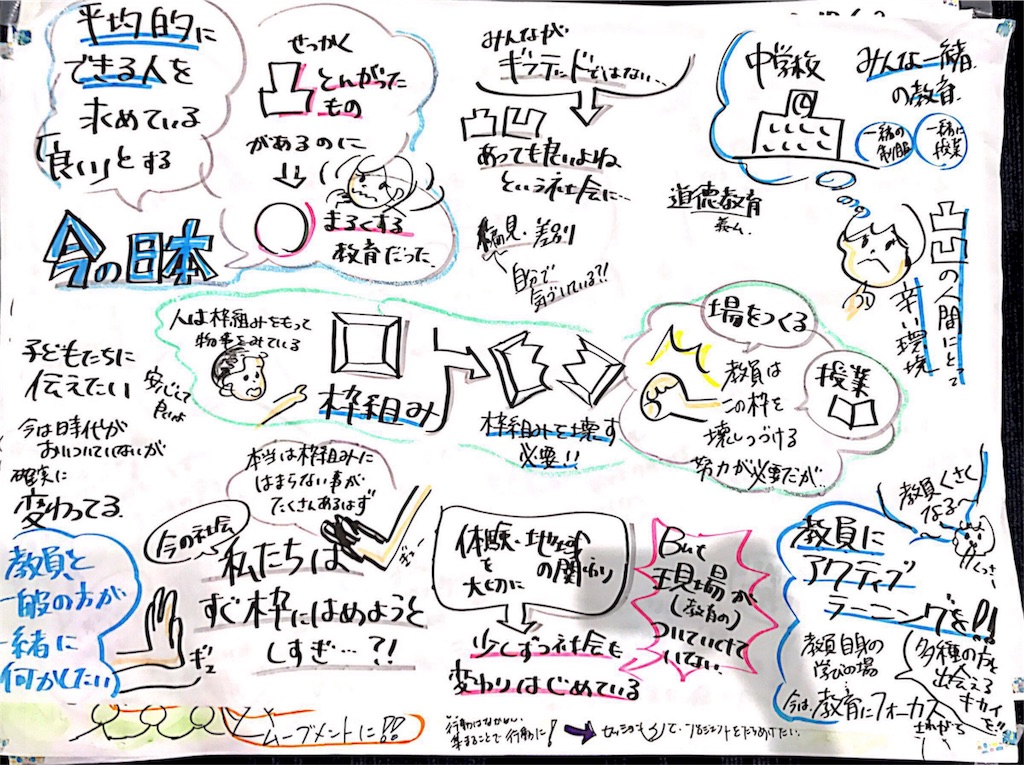 平均的に
できる人を
求めている
「良い」とする
今の日本
せっかく
凸とんがった
もの
があるのに
まるくする
教育だった
みんなが
ギフテッドではない…
凸凹
あっても良いよね
という社会に…
偏見・差別
自分で
気づしている?!
中学校
みんな一緒
の教育
一緒の
制服
一緒に
授業
道徳教育
凸凹の人間にとって
辛い環境
人は枠組みをもって
物事をみている
安心して
良いよ
枠組み
枠組みを壊す
必要!!
場をつくる
教員は
この枠を
壊しつづける
努力が必要だが…
授業
子どもたちに
伝えたい
今は時代が
おいついていないが
確実に
変わってる
教員と
一般の方が
一緒に
何かしたい
本当は枠組みに
はまらない事が
たくさんあるはず
今の社会
私たちは
すぐ枠にはめようと
しすぎ…?!
ギュ
ギュー
体験・地域
を の関わり
大切に
少しずつ社会も
変わりはじめている
But
現場が
(教育の)
ついていけて
いない
教員くさく
なる〜
くっさ
教員に
アクティブ
ラーニングを!!
教員自身の
学びの場
今は、教育にフォーカス
多種の方と
出会える
キカイを
ムーブメントに!!
集まることで行動に!